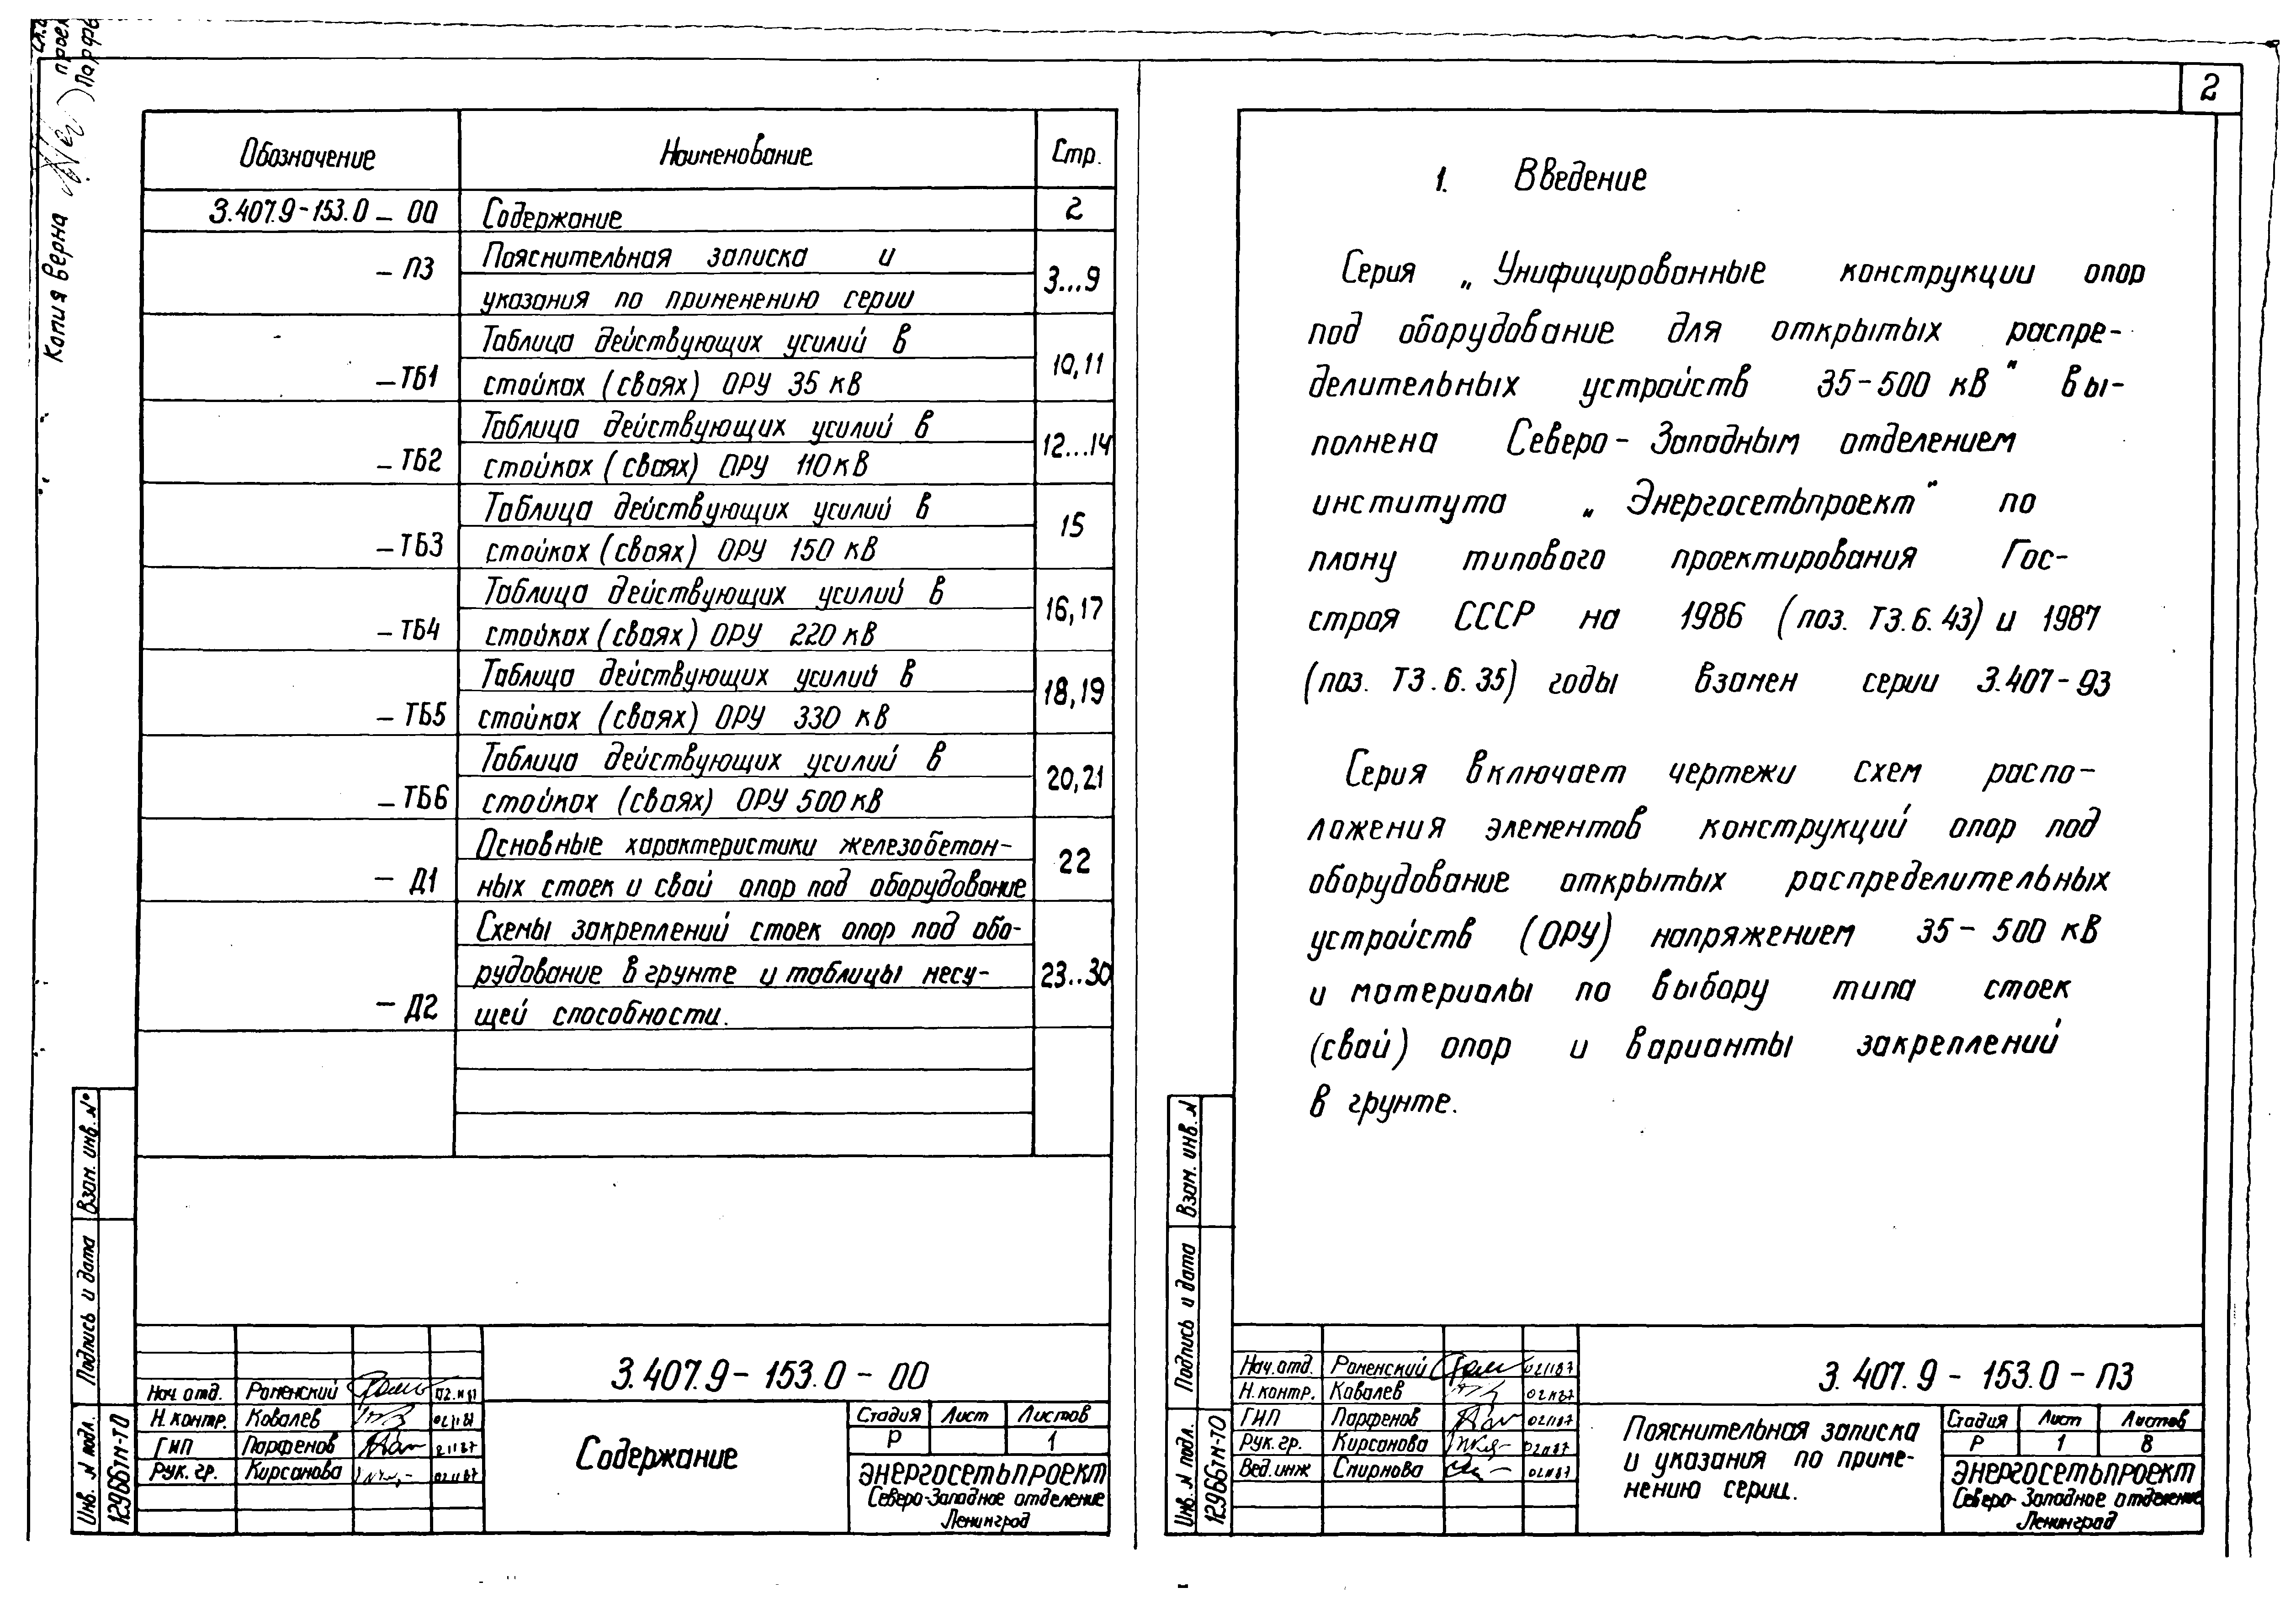 Копия верна
2
Обозначение Наименование Стр.
3.407.9-153.0 - 00 Содержание 2
- ПЗ Пояснительная записка и
указания по применению серии 3...9
Таблица действующих усилий в
- ТБ1 стойках (сваях) ОРУ 35 кВ 10,11
Таблица действующих усилий в
- ТБ2 стойках (сваях) ОРУ 110 кВ 12...14
Таблица действующих усилий в
- ТБ3 стойках (сваях) ОРУ 150 кВ 15
Таблица действующих усилий в
- ТБ4 стойках (сваях) ОРУ 220 кВ 16,17
Таблица действующих усилий в
- ТБ5 стойках (сваях) ОРУ 330 кВ 18,19
Таблица действующих усилий в
- ТБ6 стойках (сваях) ОРУ 500 кВ 20,21
Основные характеристики железобетон-
- Д1 ных стоек и свай опор под оборудование 22
Схемы закреплений стоек опор под обо-
рудование в грунте и таблицы несу- 23..30
- Д2 щей способности.
Взам. инв. №
Подпись и дата
Инв. N подл.
12966тм-т0
Нач. отд. Роменский 02.11.87
Н. контр. Ковалев 02.11.87
ГИП Парфенов 2.11.87
Рук. гр. Кирсанова 02.11.87
3.407.9 - 153.0 - 00
Содержание
Стадия Лист Листов
Р 1
ЭНЕРГОСЕТЬПРОЕКТ
Северо-Западное отделение
Ленинград
1. Введение
Серия „Унифицированные конструкции опор
под оборудование для открытых распре-
делительных устройств 35-500 кВ" вы-
полнена Северо-Западным отделением
института „Энергосетьпроект" по
плану типового проектирования Гос-
строя СССР на 1986 (поз. Т3.6.43) и 1987
(поз. Т3.6.35) годы взамен серии 3.407-93
Серия включает чертежи схем распо-
ложения элементов конструкций опор под
оборудование открытых распределительных
устройств (ОРУ) напряжением 35-500 кВ
и материалы по выбору типа стоек
(свай) опор и варианты закреплений
в грунте.
Взам. инв. N
Подпись и дата
Инв. N подл.
12966тм-т0
Нач. отд. Роменский 02.11.87
Н. контр. Ковалев 02.11.87
ГИП Парфенов 02.11.87
Рук. гр. Кирсанова 02.11.87
Вед. инж Смирнова 02.11.87
3.407.9 - 153.0 - ПЗ
Пояснительная записка
и указания по приме-
нению серии.
Стадия Лист Листов
Р 1 8
ЭНЕРГОСЕТЬПРОЕКТ
Северо-Западное отделение
Ленинград